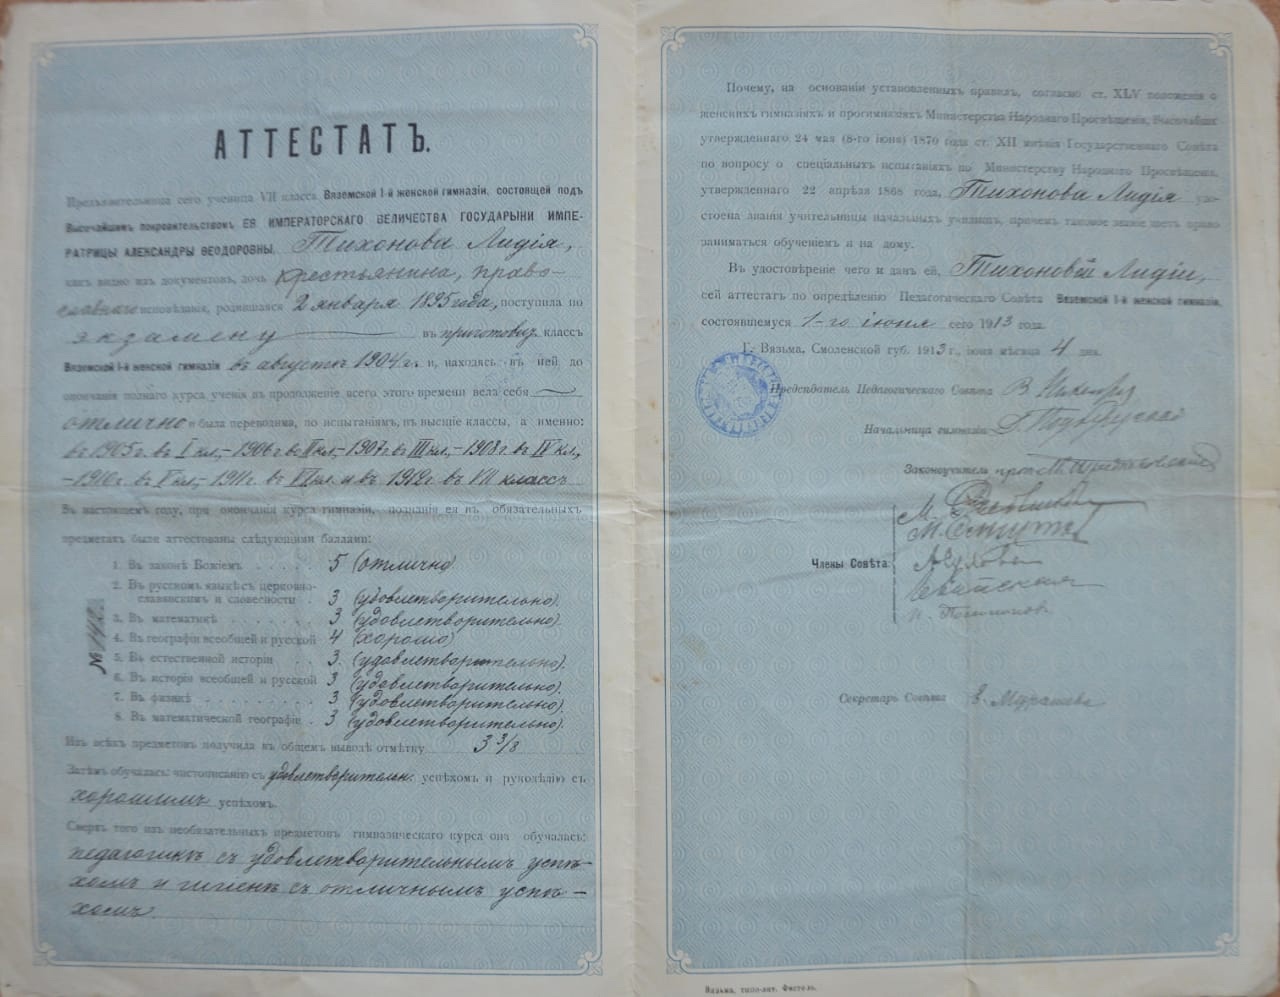 АТТЕСТАТЪ.
Предъявительница сего ученица VII класса Вяземской I-й женской гимназіи, состоящей подъ
Высочайшимъ покровительствомъ ЕЯ ИМПЕРАТОРСКАГО ВЕЛИЧЕСТВА ГОСУДАРЫНИ ИМПЕ-
РАТРИЦЫ АЛЕКСАНДРЫ ѲЕОДОРОВНЫ, Тихонова Лидія,
какъ видно изъ документовъ, дочь крестьянина, право-
славнаго исповѣданія, родившаяся 2 января 1895 года, поступила по
экзамену въ приготов. классъ
Вяземской I-й женской гимназіи въ августѣ 1904 г. и, находясь въ ней до
окончанія полнаго курса ученія въ продолженіе всего этого времени вела себя
отлично и была переводима, по испытаніямъ, въ высшіе классы, а именно:
въ 1905 г. въ I кл,-1906 г. въ II кл,-1907 г. въ III кл,-1908 г. въ IV кл,
-1910 г. въ V кл,-1911 г. въ VI кл. и въ 1912 г. въ VII классъ
Въ настоящемъ году, при окончаніи курса гимназіи, познанія ея въ обязательныхъ
предметахъ были аттестованы слѣдующими баллами:
1. Въ законѣ Божіемъ . . . . . 5 (отлично)
2. Въ русскомъ языкѣ съ церковно-
славянскимъ и словесности . 3 (удовлетворительно).
3. Въ математикѣ . . . . . . . 3 (удовлетворительно).
4. Въ географіи всеобщей и русской 4 (хорошо)
5. Въ естественной исторіи . . . 3. (удовлетворительно).
6. Въ исторіи всеобщей и русской 3 (удовлетворительно).
7. Въ физикѣ . . . . . . . . . 3 (удовлетворительно).
8. Въ математической географіи . 3 (удовлетворительно).
Изъ всѣхъ предметовъ получила въ общемъ выводѣ отмѣтку 3 3/8
Затѣмъ обучалась: чистописанію съ удовлетворительн. успѣхомъ и рукодѣлію съ
хорошимъ успѣхомъ.
Сверхъ того изъ необязательныхъ предметовъ гимназическаго курса она обучалась:
педагогикѣ съ удовлетворительнымъ успѣ-
хомъ и гигіенѣ съ отличнымъ успѣ-
хомъ.
№
Почему, на основаніи установленныхъ правилъ, согласно ст. XLV положенія о
женскихъ гимназіяхъ и прогимназіяхъ Министерства Народнаго Просвѣщенія, Высочайше
утвержденнаго 24 мая (8-го іюня) 1870 года ст. XII мнѣнія Государственнаго Совѣта
по вопросу о спеціальныхъ испытаніяхъ по Министерству Народнаго Просвѣщенія,
утвержденнаго 22 апрѣля 1868 года, Тихонова Лидія удо-
стоена званія учительницы начальныхъ училищъ, причемъ таковое званіе даетъ право
заниматься обученіемъ и на дому.
Въ удостовѣреніе чего и данъ ей, Тихоновой Лидіи,
сей аттестатъ по опредѣленію Педагогическаго Совѣта Вяземской I-й женской гимназіи,
состоявшемуся 1-го іюня сего 1913 года.
Г. Вязьма, Смоленской губ. 1913 г., іюня мѣсяца 4 дня.
Предсѣдатель Педагогическаго Совѣта В.
Начальница гимназіи
Законоучитель прот. М.
Члены Совѣта:
Секретарь Совѣта Мурашева
Вязьма, типо-лит. Фигель.